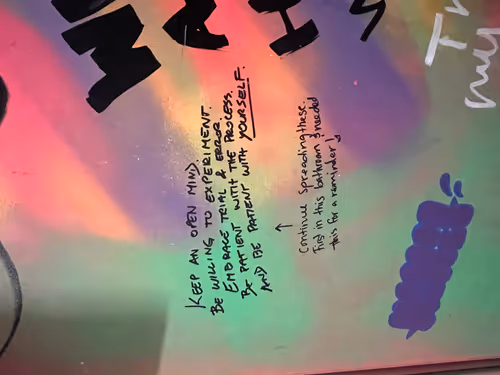 KEEP AN OPEN MIND.
BE WILLING TO EXPERIMENT.
EMBRACE TRIAL & ERROR.
BE PATIENT WITH THE PROCESS.
AND BE PATIENT WITH YOURSELF.
Continue spreading these.
First in this bathroom I needed
this for a reminder
my